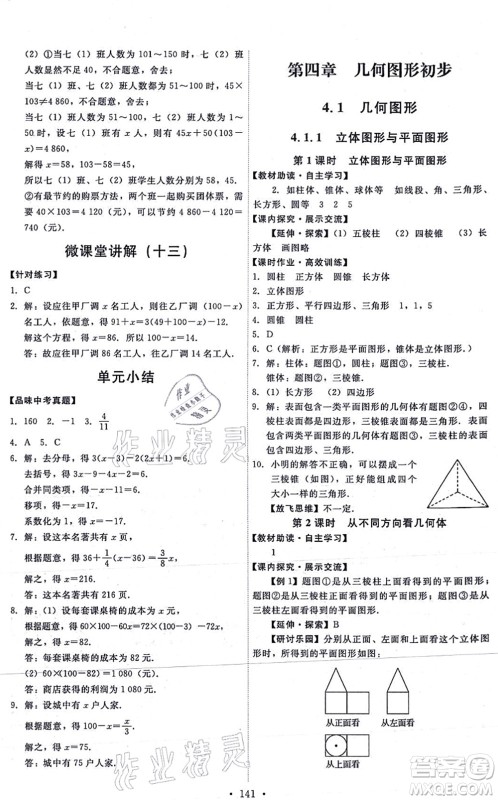 （2）①当七（1）班人数为101～150时，七（2）班
人数显然不足50，不合题意，舍去；
当七（1）班人数为51～100时，45（103－x）＋
10x≠4 860，不合题意，舍去；
当七（1）班人数为1～50时，则七（2）班人数为
51～100，根据题意，则有45x＋50（103－x）＝
4 860，
解得x＝58，103－58＝45，
所以七（1）、七（2）班学生人数分别为58，45人.
②有最节约的购票方案，即他们合起来购票，需
要费用为40×103＝4 120（元），可节省4 860－4 120＝
740（元）.
微课堂讲解（十三）
【针对练习】
1. C
2. 解：设应往甲厂调x名工人，则往乙厂调（100－x）
名工人，依题意，得91＋x＝3（49＋100－x）.
解这个方程，得x＝89. 则100－x＝11.
答：应往甲厂调89名工人，往乙厂调11名工人.
单元小结
【品味中考真题】
1. 160 2. －1 3. 4/11
4. A 5. C
6. 解：去分母，得3（x－3）－2（2x＋1）＝6.
去括号，得3x－9－4x－2＝6.
合并同类项，得－x－11＝6.
移项，得－x＝17.
系数化为1，得x＝－17.
7. 解：设这本名著共有x页.
根据题意，得36＋1/4（x－36）＝3/8x，
解之，得x＝216.
答：这本名著共有216页.
8. 解：（1）设每套课桌椅的成本为x元.
根据题意，得
60（100－x）＝72（100－3－x）
解之，得x＝82.
答：每套课桌椅的成本为82元.
（2）60×（100－82）＝1 080（元）.
答：商店获得的利润为1 080元.
9. 解：设城中有x户人家.
根据题意，得100－x＝x/3，
解之，得x＝75.
答：城中有75户人家.
第四章 几何图形初步
4.1 几何图形
4.1.1 立体图形与平面图形
第1课时 立体图形与平面图形
【教材助读·自主学习】
2. 如柱体、锥体、球体等 如线段、角、三角形、
长方形、圆等 3 2 5
【课内探究·展示交流】
【延伸·探索】（1）五棱柱 （2）四棱锥 （3）长
方体 画图略
【课时作业·高效训练】
1. 圆柱 正方体 三棱锥 四棱柱 圆锥
2. 立体图形
3. 正方形、平行四边形、三角形 1，1，5
4. 圆锥 圆柱
5. D
6. C（解析：正方形是平面图形，圆锥是立体图形）
7. 解：柱体：正方体、长方体、圆柱、四棱柱、三棱柱.
锥体：圆锥、三棱锥.
8. （1）长方形 （2）四边形
9. 解：表面包含一类平面图形的几何体有图②④，
四棱柱的表面包含四边形，三棱锥的表面包含三
角形；表面包含两类平面图形的有图①③，圆柱
的表面包含圆和长方形，三棱柱的表面包含四边
形和三角形.
10. 小明的解答正确，可搭成一个
三棱锥（如图），正好能搭成四
个大小一样的三角形.
【放飞思维】不一定.
第2课时 从不同方向看几何体
【教材助读·自主学习】
1
【课内探究·展示交流】
【例1】题图①是从三棱柱上面看得到的平面图形，
题图②是从三棱柱正面看得到的平面图形，题图③是从
三棱柱左面看得到的平面图形.
【延伸·探索】B
【研讨乐园】分别从正面、左面、上面看这个立体图
形，得到的平面图形如图所示.
从正面看
从左面看
从上面看
作业精灵
作业精灵
141
答案圈
MXQE.COM